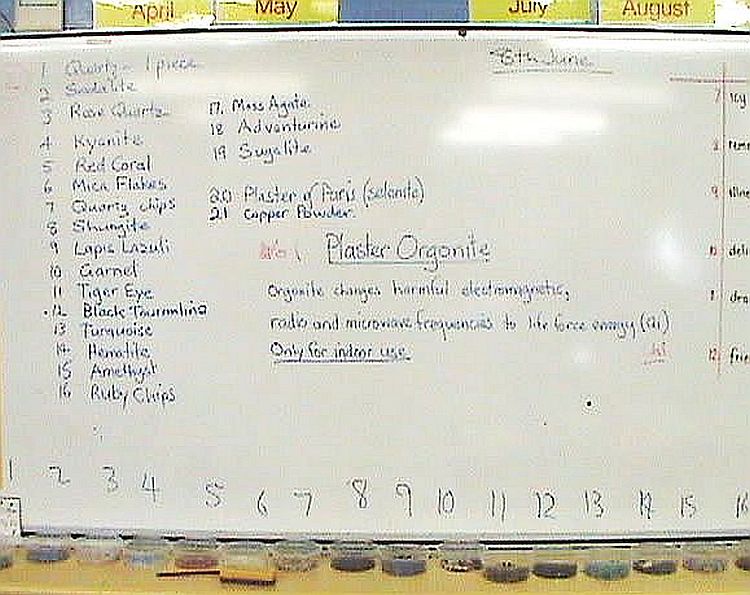 April
May
July
August
8th June
1 Quartz - 1 piece
2 Sodalite
3 Rose Quartz
4 Kyanite
5 Red Coral
6 Mica Flakes
7 Quartz chips
8 Shungite
9 Lapis Lazuli
10 Garnet
11 Tiger Eye
12 Black Tourmline
13 Turquoise
14 Hematite
15 Amethyst
16 Ruby Chips
17. Moss Agate
18 Adventurine
19 Sugalite
20 Plaster of Paris (selenite)
21 Copper Powder.
Plaster Orgonite
Orgonite changes harmful electromagnetic,
radio and microwave frequencies to life force energy (Qi)
Only for indoor use.
1 2 3 4 5 6 7 8 9 10 11 12 13 14 15 16